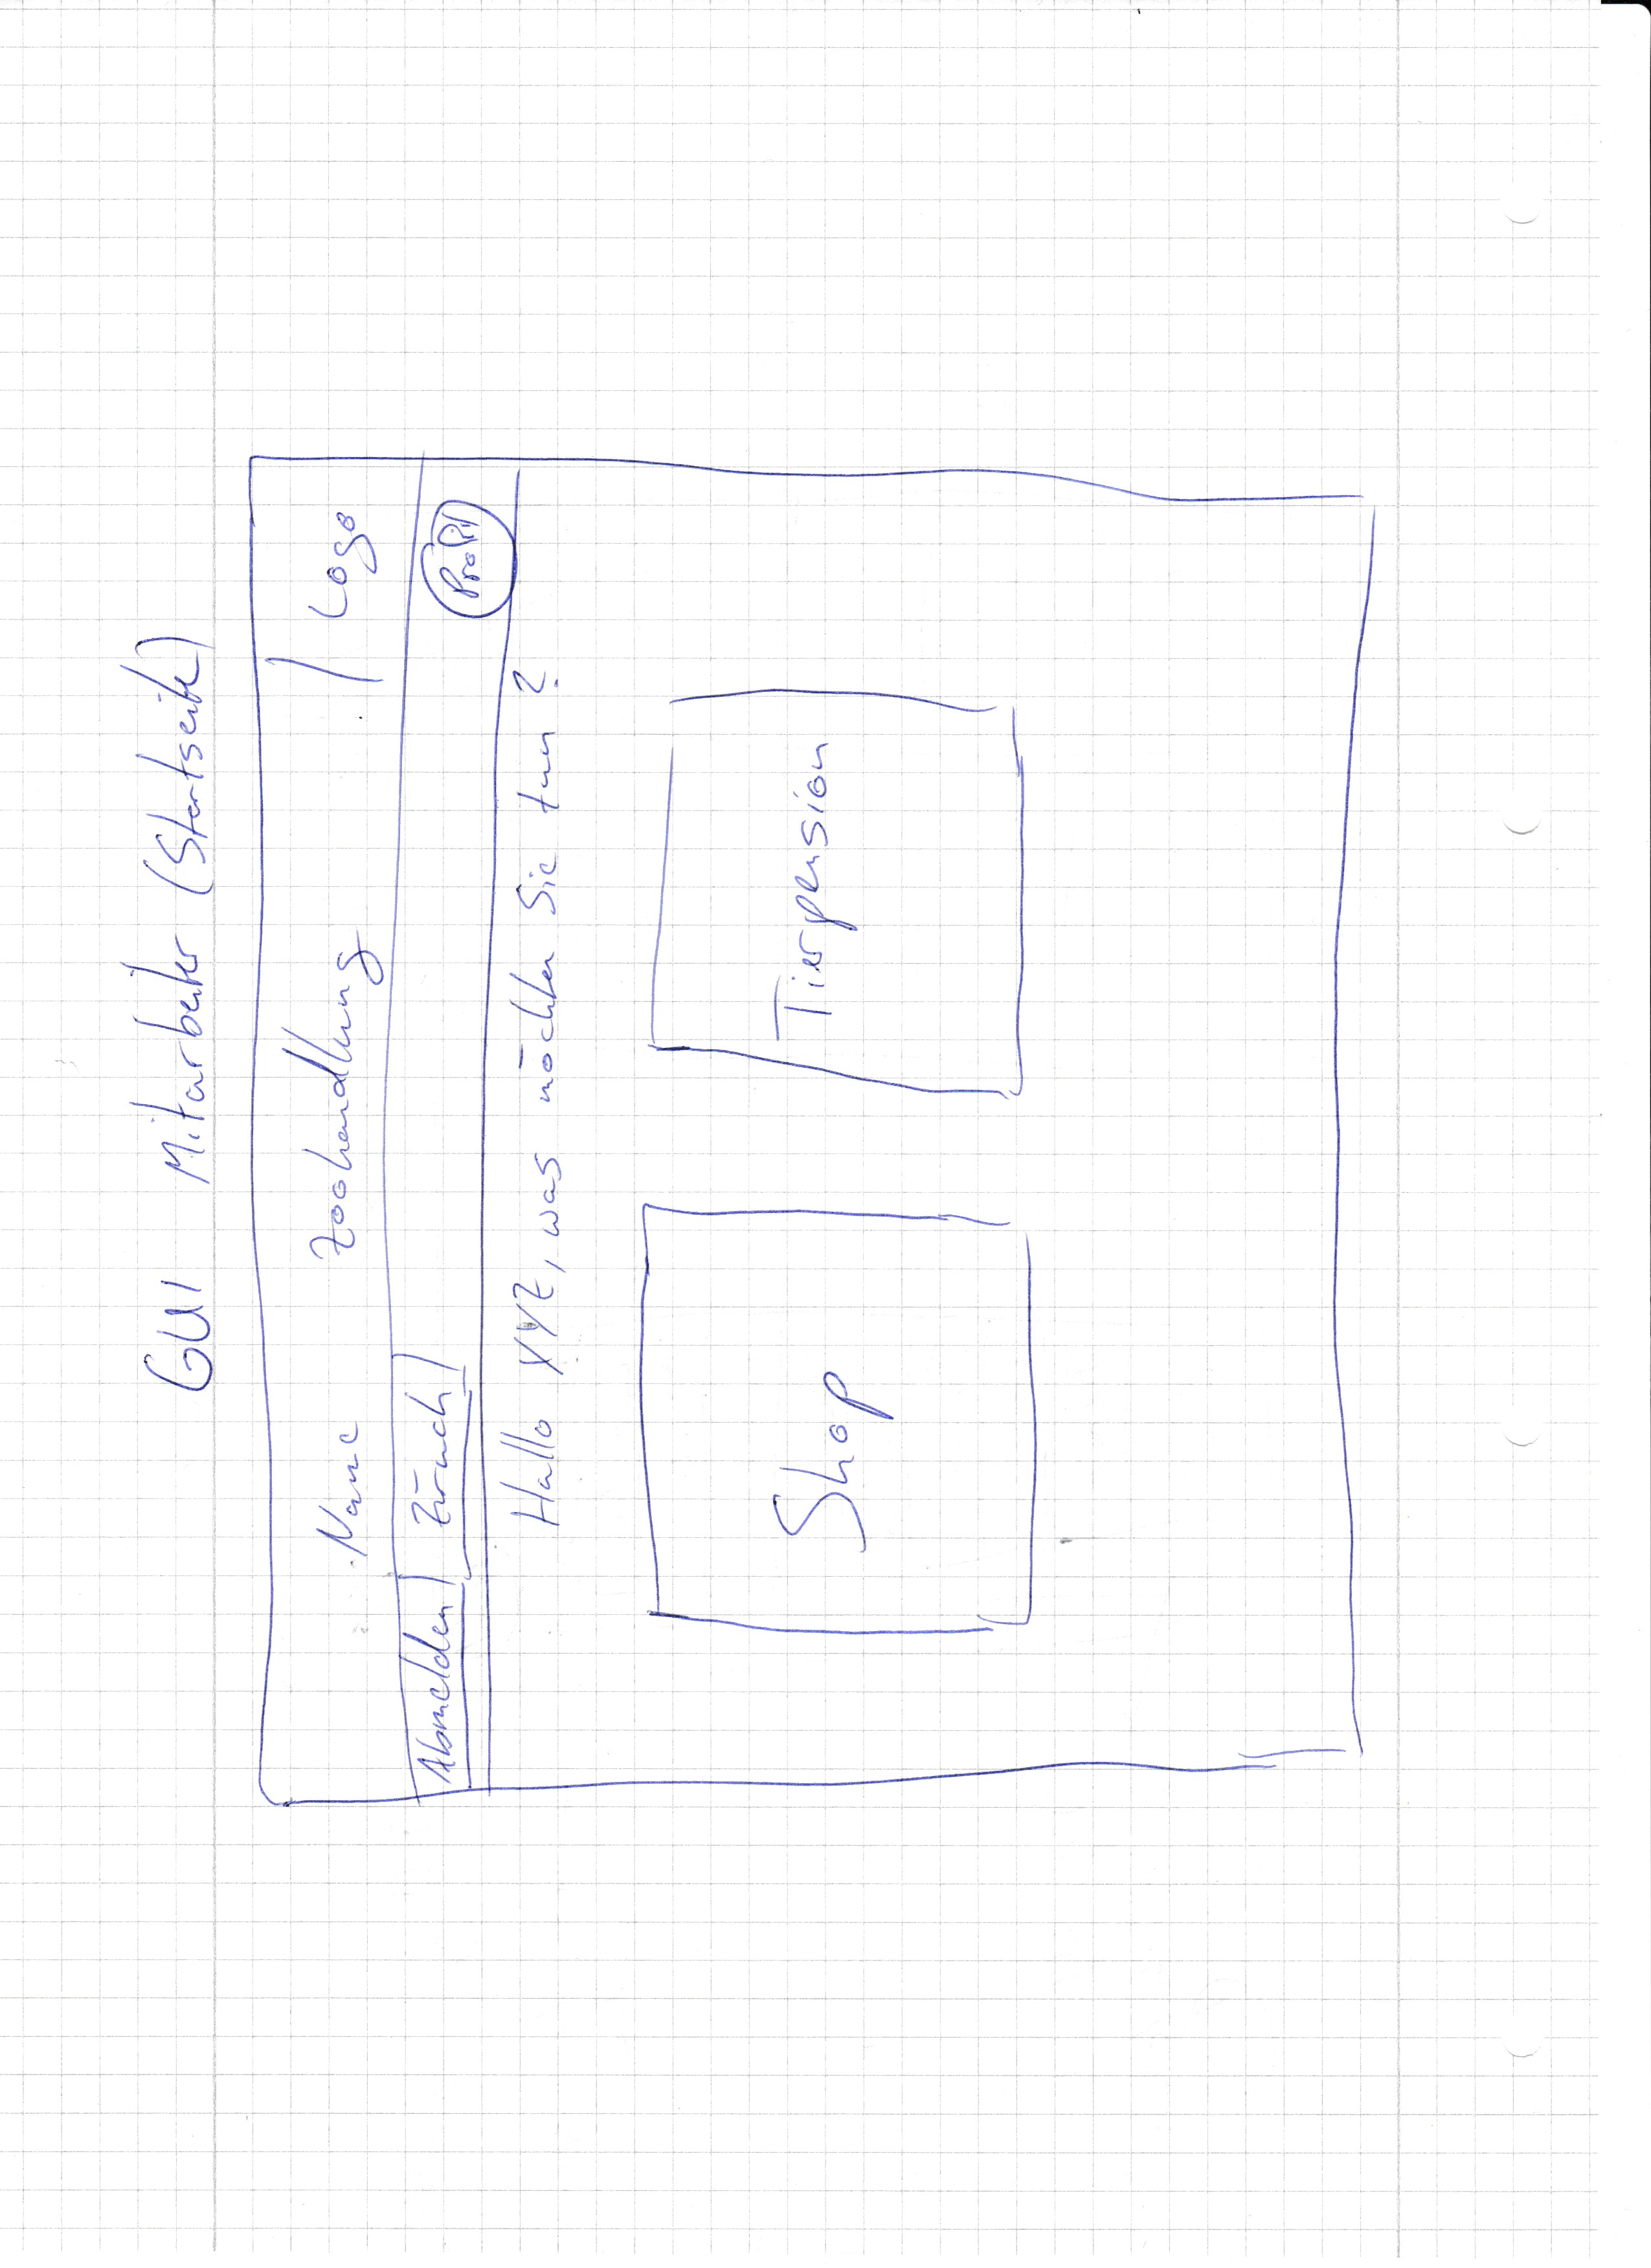 GUI Mitarbeiter (Startseite)
Name Zoohandlung | Logo
Abmelden | Zurück | Profil
Hallo XYZ, was möchten Sie tun?
Shop Tierpension